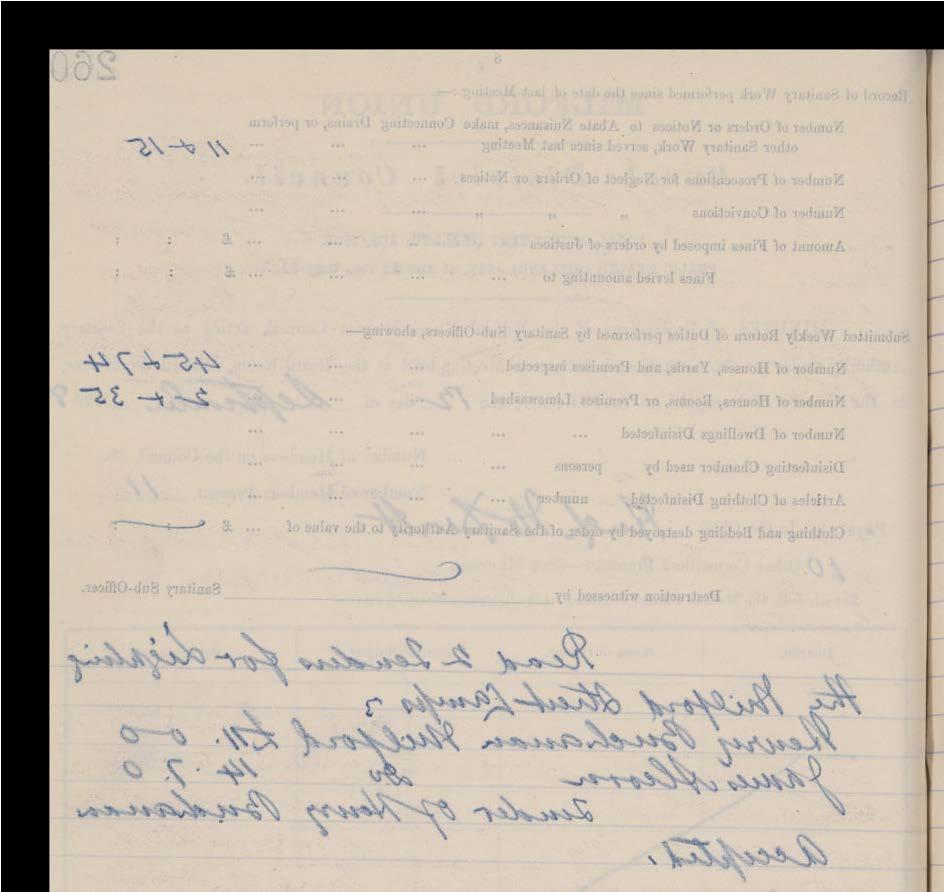 260
8
Record of Sanitary Work performed since the date of last Meeting :—
Number of Orders or Notices to Abate Nuisances, make Connecting Drains, or perform
other Sanitary Work, served since last Meeting ... ... ... 11 + 15
Number of Prosecutions for Neglect of Orders or Notices ... ... ...
Number of Convictions „ „ „ ... ...
Amount of Fines imposed by orders of Justices ... ... ... £ : :
Fines levied amounting to ... ... ... ... £ : :
Submitted Weekly Return of Duties performed by Sanitary Sub-Officers, showing—
Number of Houses, Yards, and Premises inspected ... ... ... 45 + 74
Number of Houses, Rooms, or Premises Limewashed ... ... ... 3 + 35
Number of Dwellings Disinfected ... ... ... ... ...
Disinfecting Chamber used by persons ... ... ... ...
Articles of Clothing Disinfected number ... ... ... ...
Clothing and Bedding destroyed by order of the Sanitary Authority to the value of ... £ : :
Destruction witnessed by Sanitary Sub-Officer.
Read 2 Tenders for Lighting
the Milford Street Lamps
Henry Buchanan Milford £11. 0 0
James Alcorn Do 14. 7. 0
Tender of Henry Buchanan
accepted.